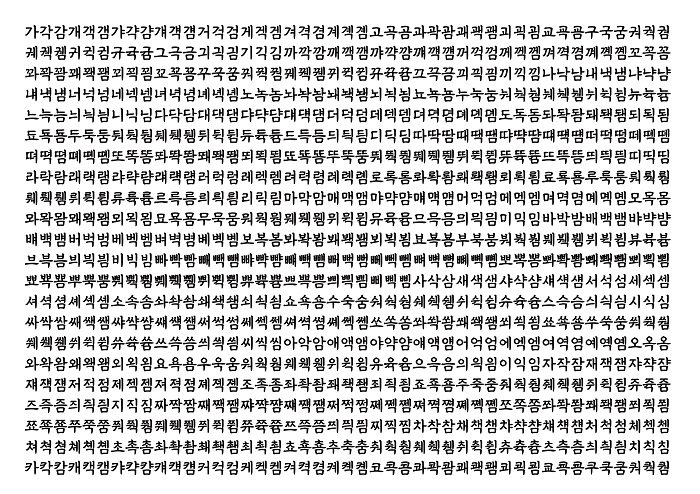 가각감개객갬갸갹걈걔걕걤거걱검게겍겜겨격겸계곅곔고곡곰과곽괌괘괙괨괴괵굄교굑굠구국굼궈궉궘
궤궥궴귀귁귐규귝귬그극금긔긕긤기긱김까깍깜깨깩깸꺄꺅꺔꺠꺡꺰꺼꺽껌께껙껨껴껵껸꼐꼑꼠꼬꼭꼼
꽈꽉꽘꽤꽥꽴꾀꾁꾐꾜꾝꾬꾸꾹꿈꿔꿕꿤꿰꿱뀀뀌뀍뀜뀨뀩뀸끄끅끔끠끡끰끼끽낌나낙남내낵냄냐냑냠
냬냭냼너넉넘네넥넴녀녁념녜녝녬노녹놈놔놕놤놰놱뇀뇌뇍뇜뇨뇩뇸누눅눔눠눡눰눼눽뉌뉘뉙뉨뉴뉵늄
느늑늠늬늭늼니닉님다닥담대댁댐댜댝댬댸댹덈더덕덤데덱뎀뎌뎍뎜뎨뎩뎸도독돔돠돡돰돼돽됌되됙됨
됴됵둄두둑둠둬둭둼뒈뒉뒘뒤뒥뒴듀듁듐드득듬듸듹딈디딕딤따딱땀때땍땜땨땩땸떄떅떔떠떡떰떼떽뗌
뗘뗙뗨뗴뗵똄또똑똠똬똭똼뙈뙉뙘뙤뙥뙴뚀뚁뚐뚜뚝뚬뚸뚹뛈뛔뛕뛤뛰뛱뜀뜌뜍뜜뜨뜩뜸띄띅띔띠띡띰
라락람래랙램랴략럄럐럑럠러럭럼레렉렘려력렴례롁롐로록롬롸롹뢈뢔뢕뢤뢰뢱룀료룍룜루룩룸뤄뤅뤔
뤠뤡뤰뤼뤽륌류륙륨르륵름릐릑릠리릭림마막맘매맥맴먀먁먐먜먝먬머먹멈메멕멤며멱몀몌몍몜모목몸
뫄뫅뫔뫠뫡뫰뫼뫽묌묘묙묨무묵뭄뭐뭑뭠뭬뭭뭼뮈뮉뮘뮤뮥뮴므믁믐믜믝믬미믹밈바박밤배백뱀뱌뱍뱜
뱨뱩뱸버벅범베벡벰벼벽볌볘볙볨보복봄봐봑봠봬봭봼뵈뵉뵘뵤뵥뵴부북붐붜붝붬붸붹뷈뷔뷕뷤뷰뷱븀
브븍븜븨븩븸비빅빔빠빡빰빼빽뺌뺘뺙뺨뺴뺵뻄뻐뻑뻠뻬뻭뻼뼈뼉뼘뼤뼥뼴뽀뽁뽐뽜뽝뽬뽸뽹뾈뾔뾕뾤
뾰뾱뿀뿌뿍뿜뿨뿩뿸쀄쀅쀔쀠쀡쀰쀼쀽쁌쁘쁙쁨쁴쁵삄삐삑삠사삭삼새색샘샤샥샴섀섁섐서석섬세섹셈
셔셕셤셰셱솀소속솜솨솩솸쇄쇅쇔쇠쇡쇰쇼쇽숌수숙숨숴숵쉄쉐쉑쉠쉬쉭쉼슈슉슘스슥슴싀싁싐시식심
싸싹쌈쌔쌕쌤쌰쌱썀썌썍썜써썩썸쎄쎅쎔쎠쎡쎰쎼쎽쏌쏘쏙쏨쏴쏵쐄쐐쐑쐠쐬쐭쐼쑈쑉쑘쑤쑥쑴쒀쒁쒐
쒜쒝쒬쒸쒹쓈쓔쓕쓤쓰쓱씀씌씍씜씨씩씸아악암애액앰야약얌얘얙얨어억엄에엑엠여역염예옉옘오옥옴
와왁왐왜왝왬외왹욈요욕욤우욱움워웍웜웨웩웸위윅윔유육윰으윽음의읙읨이익임자작잠재잭잼쟈쟉쟘
쟤쟥쟴저적점제젝젬져젹졈졔졕졤조족좀좌좍좜좨좩좸죄죅죔죠죡죰주죽줌줘줙줨줴줵쥄쥐쥑쥠쥬쥭쥼
즈즉즘즤즥즴지직짐짜짝짬째짹쨈쨔쨕쨤쨰쨱쩀쩌쩍쩜쩨쩩쩸쪄쪅쪔쪠쪡쪰쪼쪽쫌쫘쫙쫨쫴쫵쬄쬐쬑쬠
쬬쬭쬼쭈쭉쭘쭤쭥쭴쮀쮁쮐쮜쮝쮬쮸쮹쯈쯔쯕쯤쯰쯱찀찌찍찜차착참채책챔챠챡챰챼챽첌처척첨체첵쳄
쳐쳑쳠쳬쳭쳼초촉촘촤촥촴쵀쵁쵐최쵝쵬쵸쵹춈추축춤춰춱췀췌췍췜취췩췸츄츅츔츠측츰츼츽칌치칙침
카칵캄캐캑캠캬캭캼컈컉컘커컥컴케켁켐켜켝켬켸켹콈코콕콤콰콱쾀쾌쾍쾜쾨쾩쾸쿄쿅쿔쿠쿡쿰쿼퀵퀌